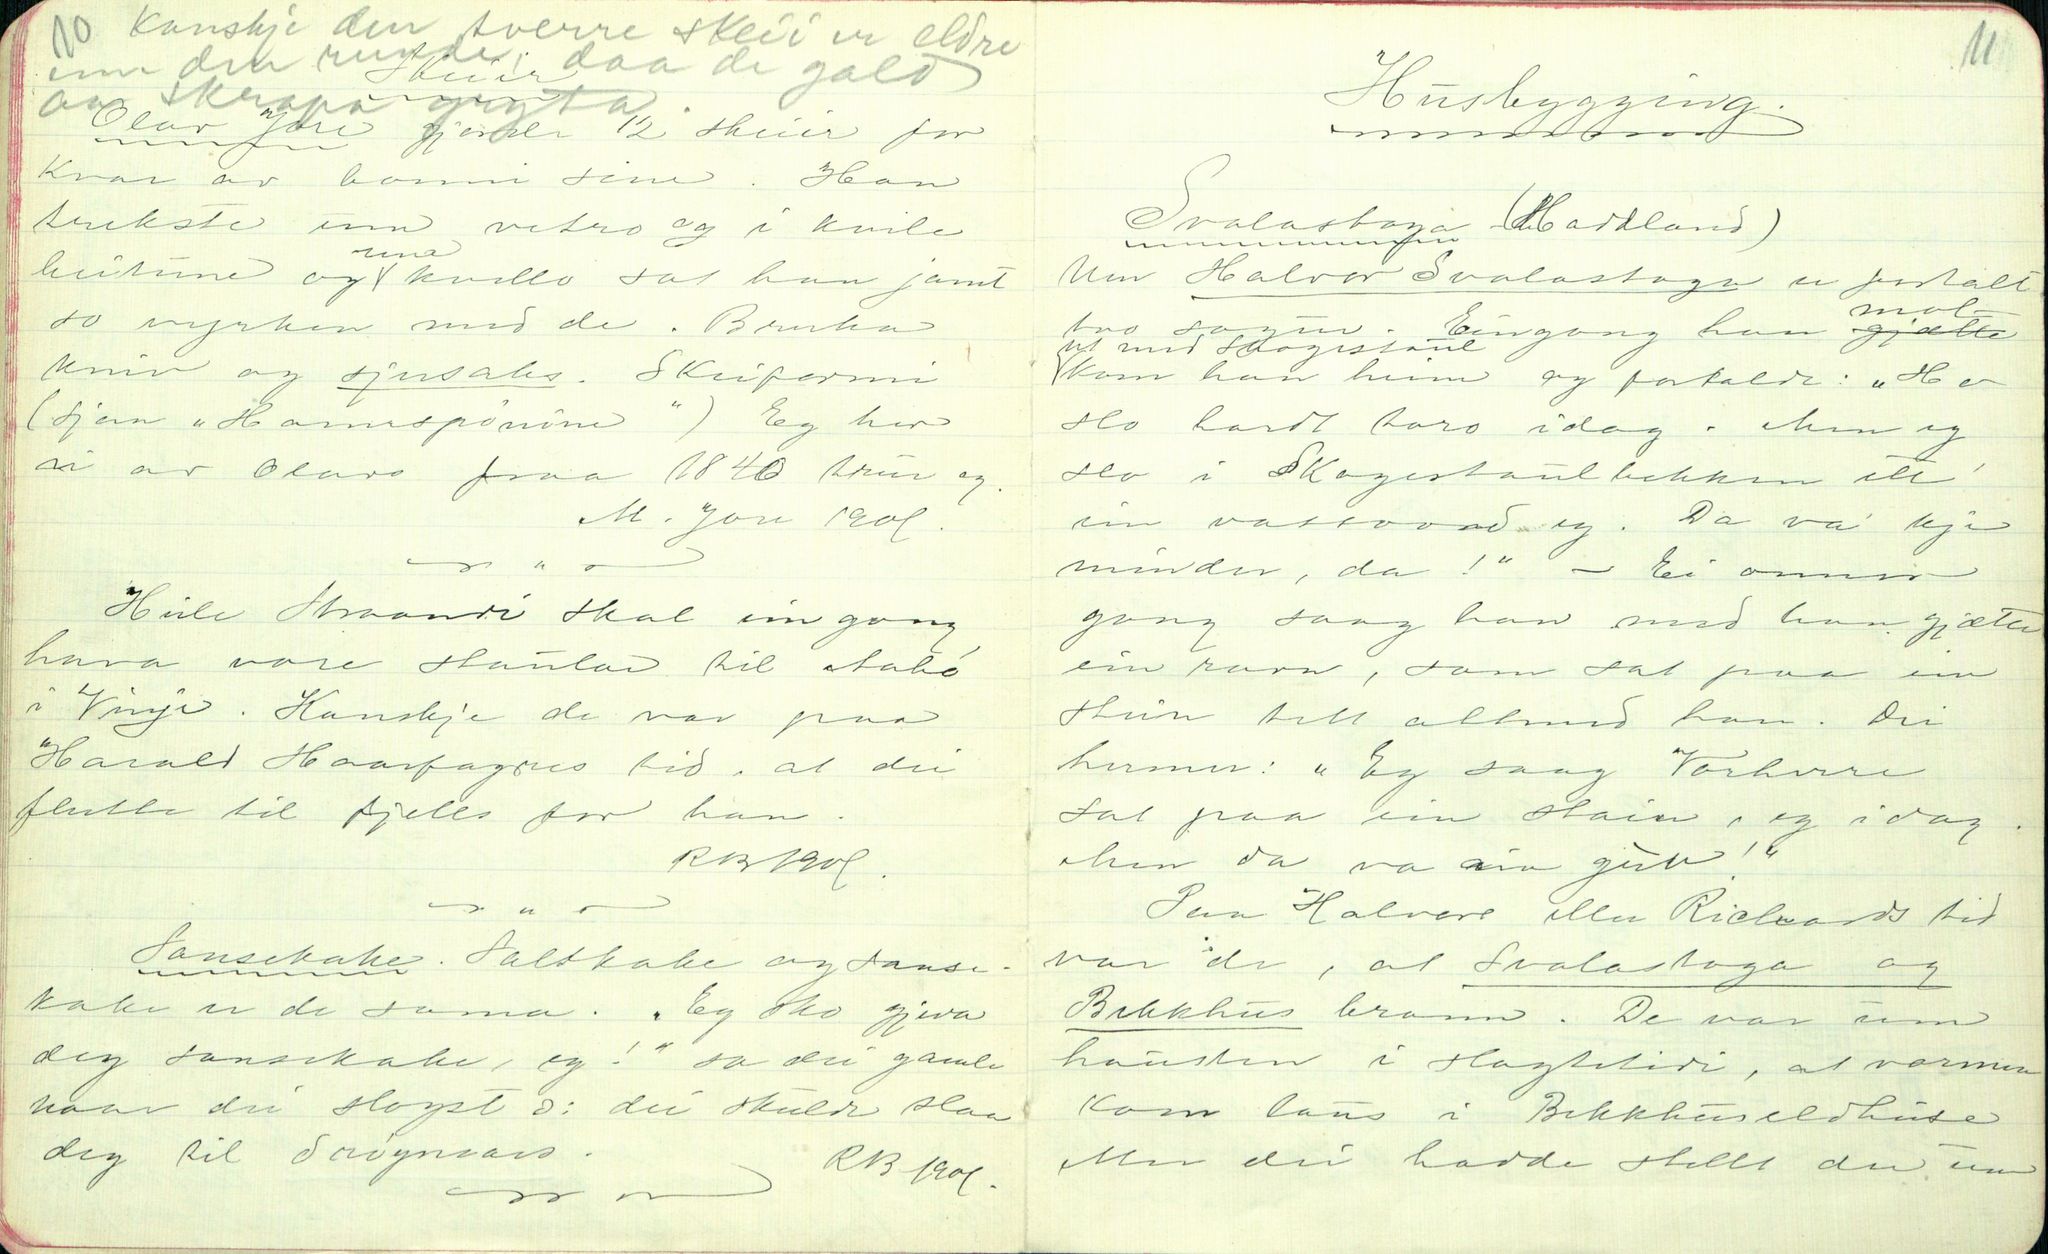 10 Kanskje den tverre skeii er eldre
enn den runde, daa de galdt
aa skrapa gryta.
Skeiir
Olav Jore gjorde 12 skeiir for
kvar av bonni sine. Han
trekste inn vetro og i kvile
beitune og une kvello sat han jamt
so vyrken med de. Bruka
kniv og sjusaks. Skeiformi
(sjaa "Hornespónine") Eg her
ei av Olavs fraa 1840 truir eg.
M. Jore 1901.
Heile Straondi skal ein gong
hava vore staular til Aabó
i Vinje. Kanskje de var paa
Harald Haarfagres tid. at dei
flutte til fjells for han.
RB 1901.
Sansekake. Saltkake og sanse-
kake er de sama. "Eg sko gjeva
deg sansekake, eg!" sa dei gamle
naar dei slogst ɔ: dei skulde slaa
deg til drøymars.
RB 1901.
11
Husbygging.
Svalastoga (Haddland)
Um Halvor Svalastoga er fortalt
tvo sogur. Eingong han gjætte mot
ut med Skogestaul
kom han heim og fortalde: "Ho
slo hardt toro idag. Men eg
slo i Skogestaulbekken ett
ein vassoond eg. Da va kje
minder, da!" – Ei onnor
gong saag han med han gjætte
ein ravn, som sat paa ein
stein tett attmed han. Dei
hermer: "Eg saag Vorherre
sat paa ein stein, eg idag.
Men da va ein gut!"
Paa Halvors eller Rickards tid
var de, at Svalastoga og
Bekkhus brann. De var um
hausten i slagtetidi, at varmen
kom laus i Bekkhuseldhuse
Men dei hadde stellt der um